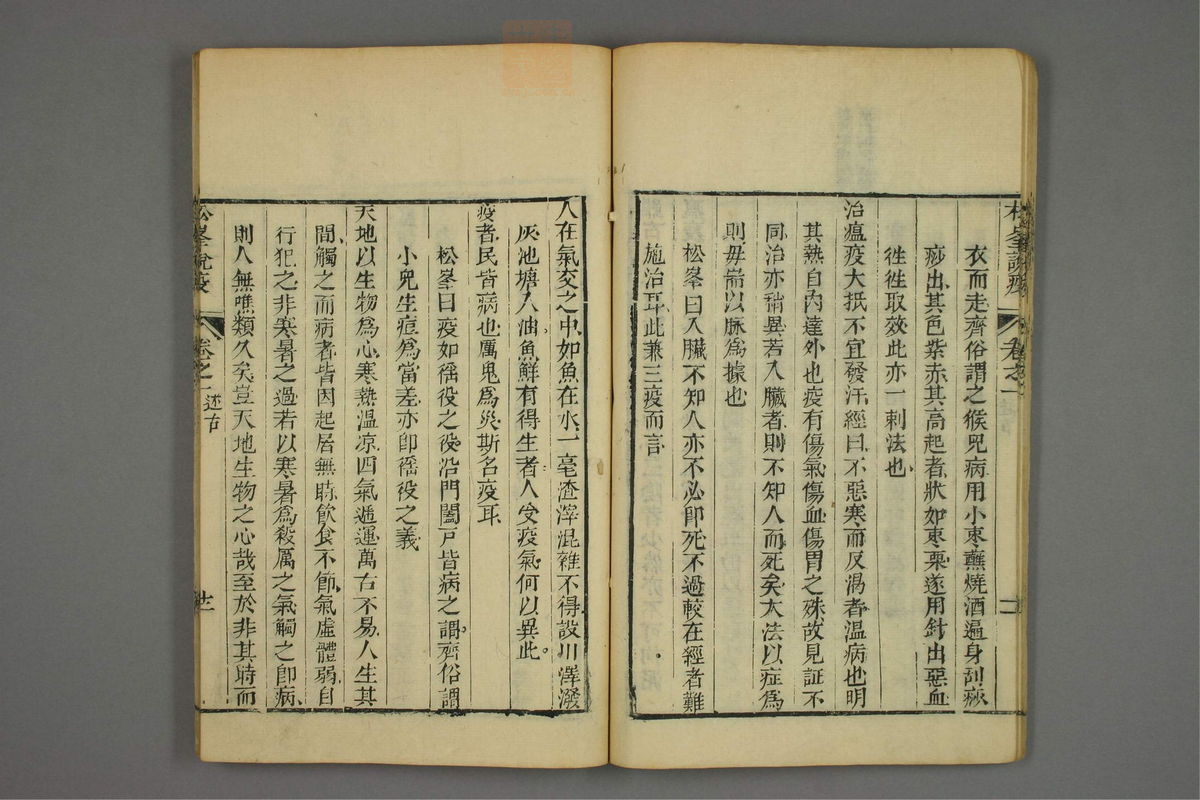 松峯說疫
卷之一
衣而走齊俗謂之猴兒病用小棗蘸燒酒遍身刮痧
痧出其色紫赤其高起者狀如棗栗遂用針出惡血
徃徃取效此亦一刺法也
治瘟疫大抵不宜發汗經曰不惡寒而反渴者溫病也明
其熱自內達外也疫有傷氣傷血傷胃之殊故見証不
同治亦稍異若入臟者則不知人而死矣大法以症為
則毋耑以脉為據也
松峯曰入臟不知人亦不必卽死不過較在經者難
施治耳此兼三疫而言
人在氣交之中如魚在水一毫渣滓混雜不得設川澤潑
灰池塘入油魚鮮有得生者人受疫氣何以異此
疫者民皆病也厲鬼為災斯名疫耳
松峯曰疫如徭役之役沿門闔戸皆病之謂齊俗謂
小兒生痘為當差亦卽徭役之義
天地以生物為心寒熱溫凉四氣遞運萬古不易人生其
間觸之而病者皆因起居無時飲食不節氣虛體弱自
行犯之非寒暑之過若以寒暑為殺厲之氣觸之卽病
則人無噍類久矣豈天地生物之心哉至於非其時而
松峯說疫
卷之一
述古